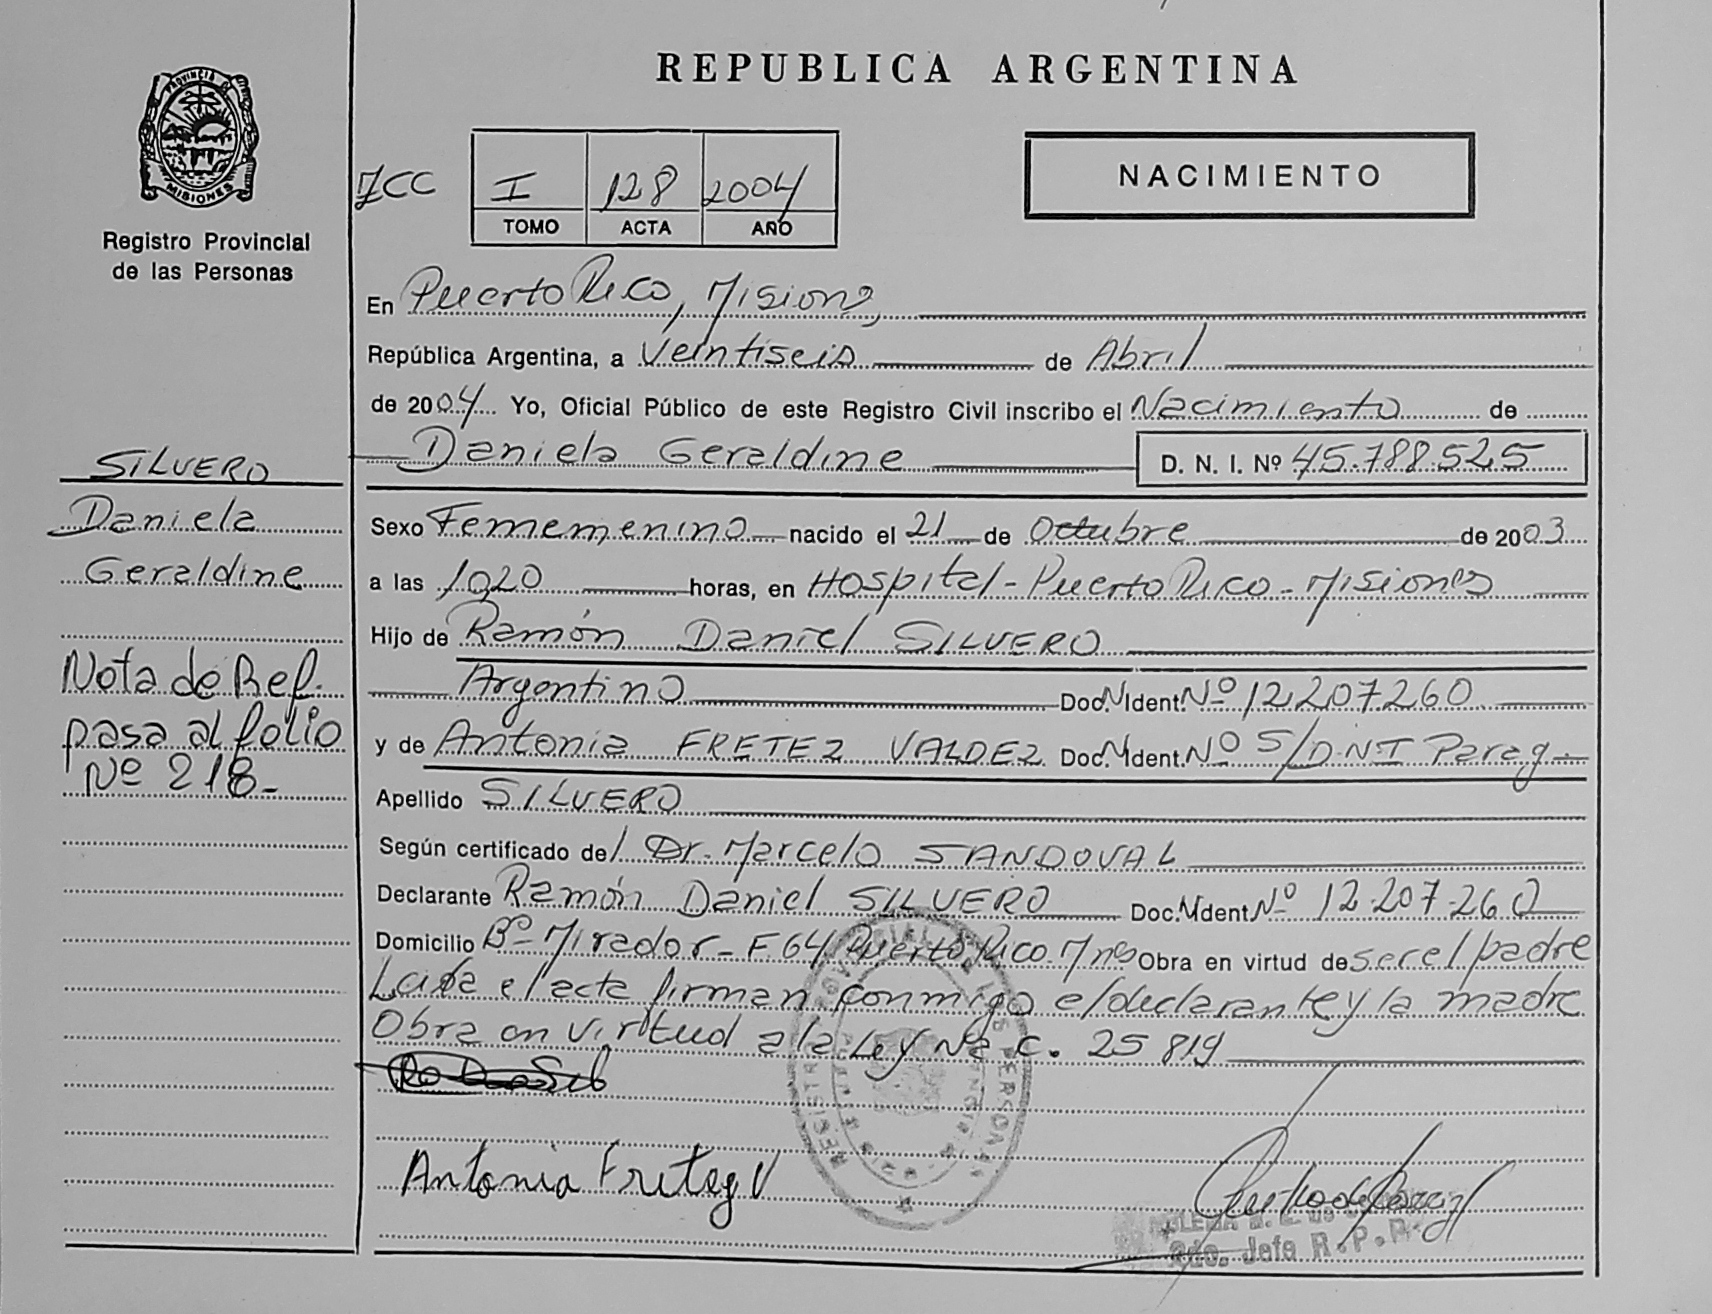 REPUBLICA ARGENTINA
PROVINCIA DE
MISIONES
Registro Provincial
de las Personas
I 128 2004
TOMO ACTA AÑO
NACIMIENTO
En Puerto Rico, Misiones,
República Argentina, a Veintiseis de Abril
de 2004 Yo, Oficial Público de este Registro Civil inscribo el Nacimiento de
Daniela Geraldine D. N. I. Nº 45.788.525
Sexo Fememenino nacido el 21 de Octubre de 2003
a las 1020 horas, en Hospital - Puerto Rico - Misiones
Hijo de Ramón Daniel SILVERO
Argentino Doc. N Ident. Nº 12.207.260
y de Antonia FRETEZ VALDEZ Doc. N Ident. Nº S/DNI Parag
Apellido SILVERO
Según certificado del Dr. Marcelo SANDOVAL
Declarante Ramón Daniel SILVERO Doc. N Ident. Nº 12.207.260
Domicilio Bº Mirador - F.64 Puerto Rico Mnes Obra en virtud de ser el padre
el acta firman conmigo el declarante y la madre
Obra en virtud a la Ley Nac. 25819
Antonia Fretez V
Jefe R.P.P.
SILVERO
Daniela
Geraldine
Nota de Ref.
pasa al folio
Nº 218-